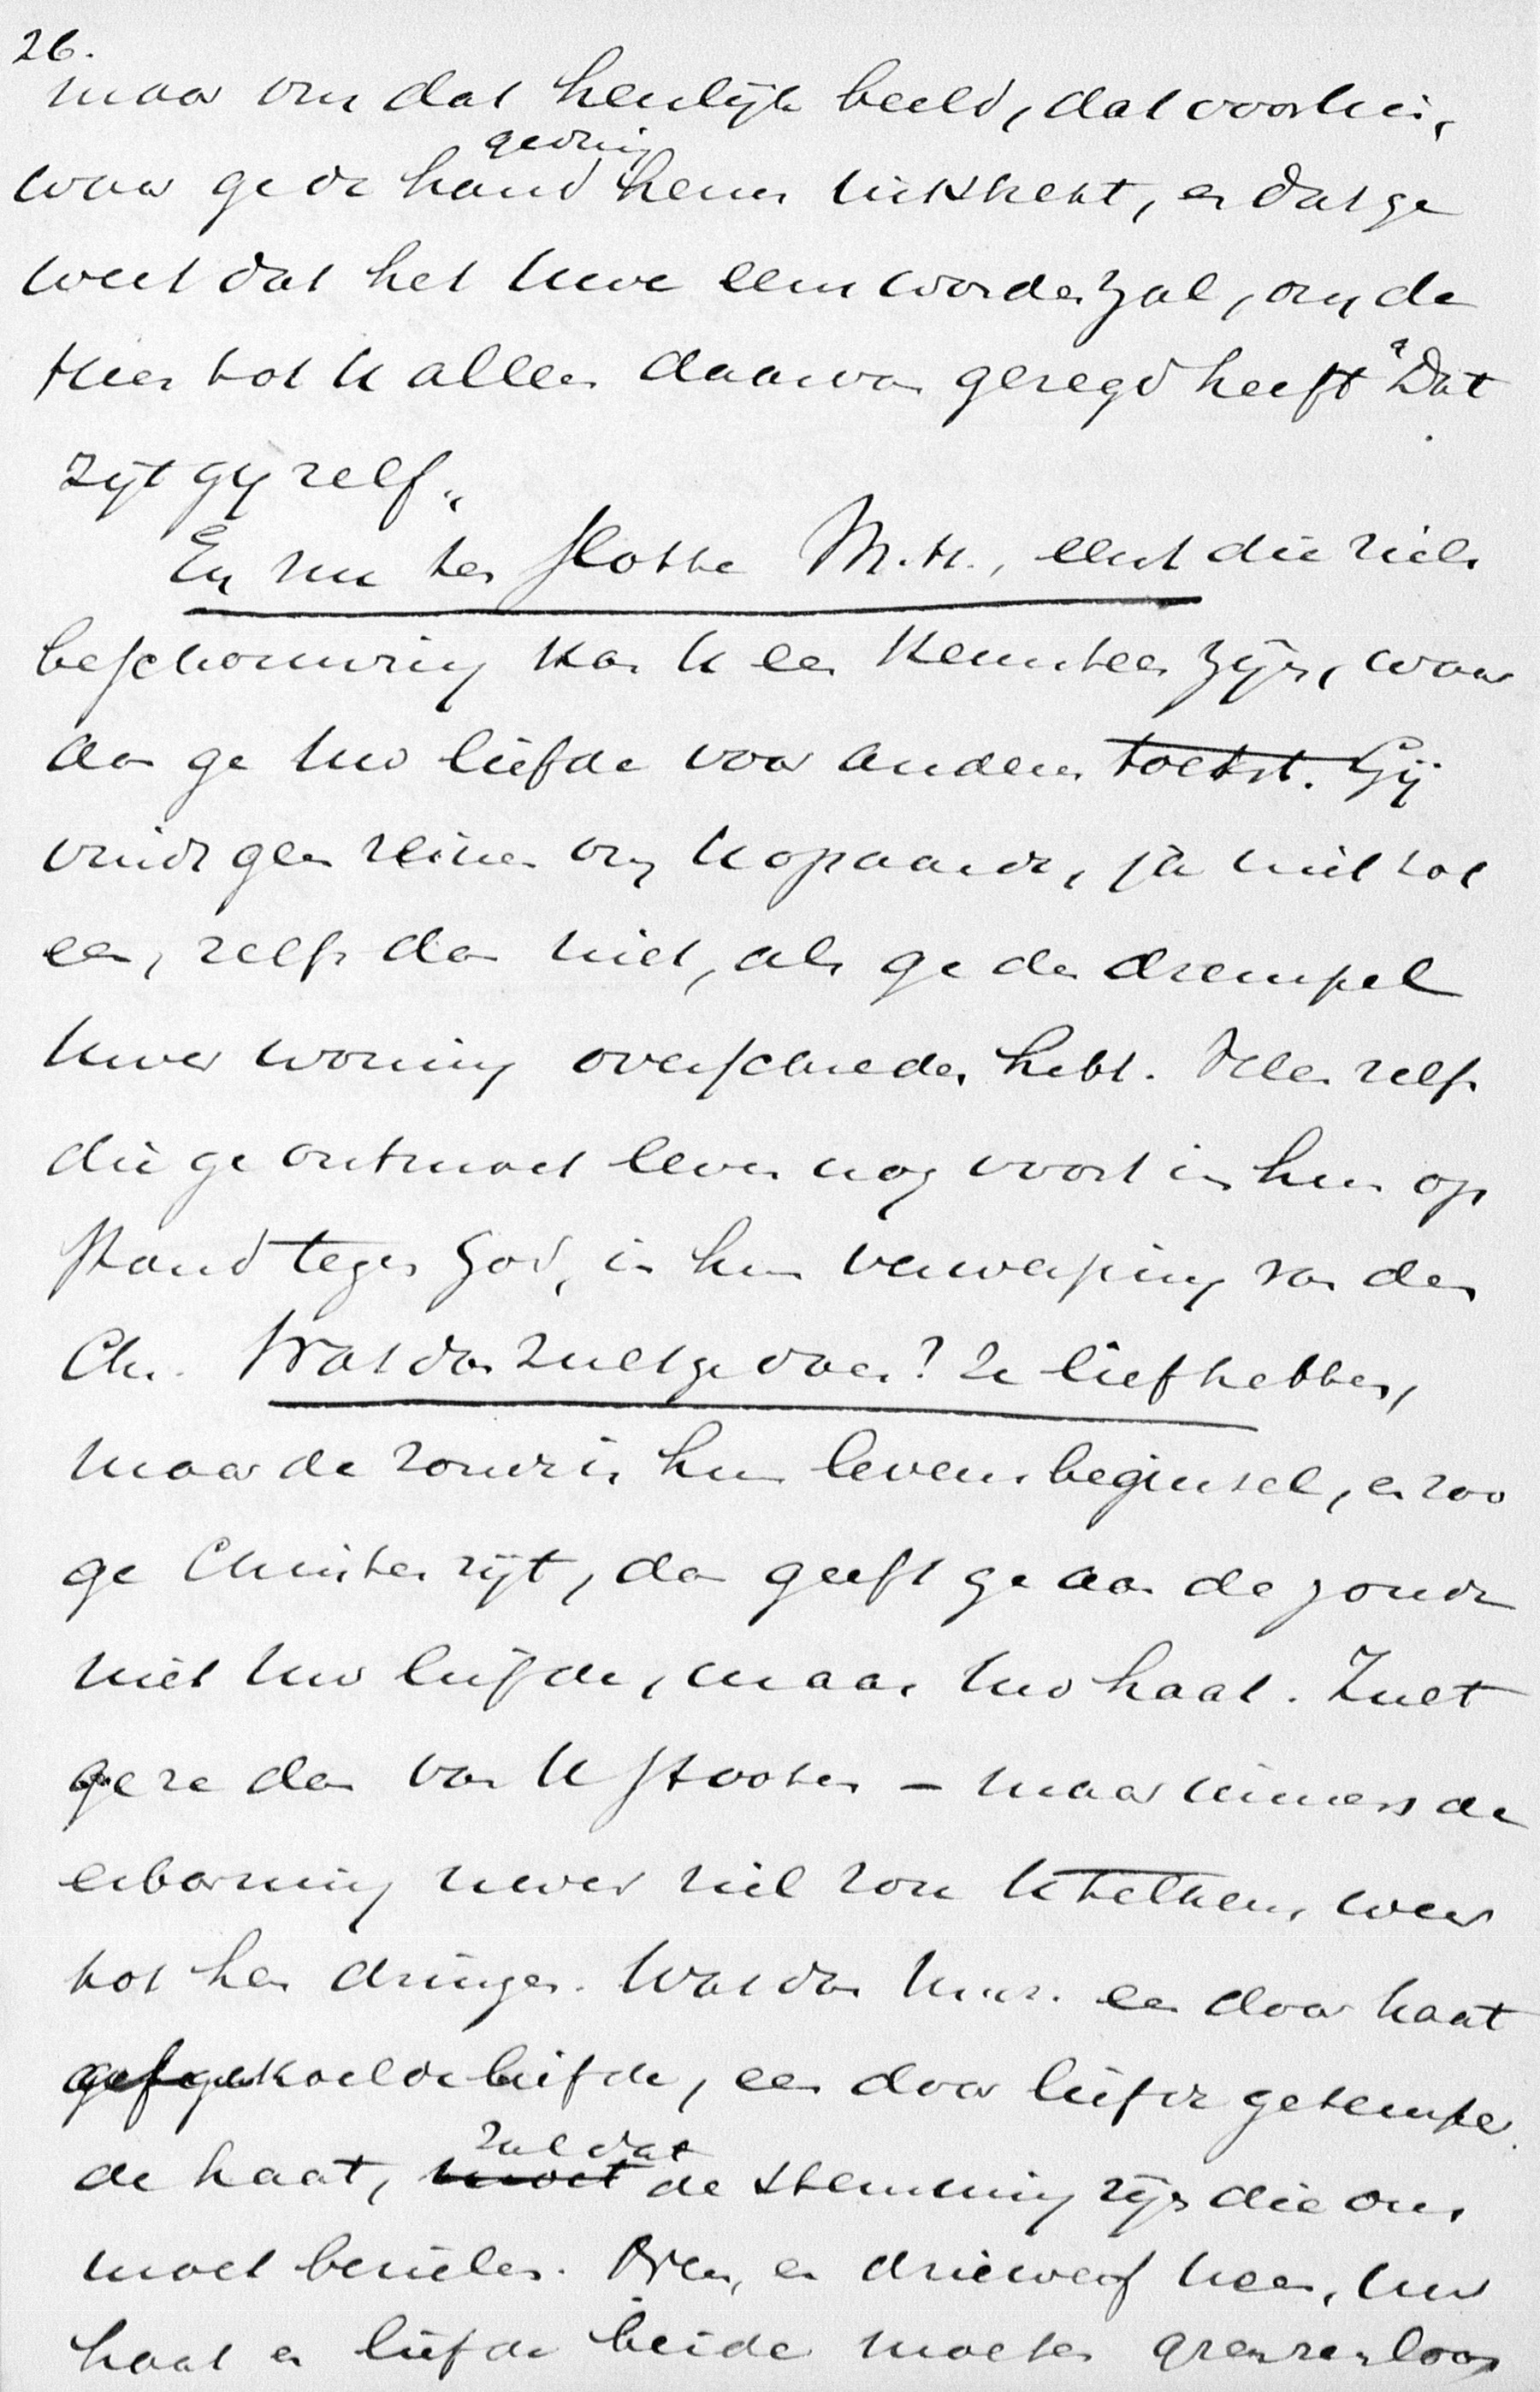 26.
maar om dat heerlijk beeld, dat voorbij,
gedurig
waar ge de hand heen uitstrekt, en dat ge
weet dat het Uwe eens worden zal, omdat de
Heer tot U alleen daarvan gezegd heeft "Dat
zijt gij zelf„
En nu ten slotte M.H., eerst die ziels
beschouwing kan U een kenner zijn, waar
aan ge Uw liefde voor anderen toetst. Gij
vindt geen reinen om U op aarde, ja niet tot
een, zelfs dan niet, als ge den drempel
Uwer woning overschreden hebt. Allen zelfs
die ge ontmoet leven nog voort in hun op
stand tegen God, in hun verwerping van den
Chr. Wat dan zult ge doen? Ze liefhebben,
maar de zonde is hun levensbeginsel, en zoo
ge Christen zijt, dan geeft ge aan de zonde
niet Uw liefde, maar Uw haat. Zult
ge ze dan van U stooten – maar immers de
erbarming uwer ziel zou U telkens weer
tot hen dringen. Wat dan M.H. een door haat
gekoelde liefde, een door liefde getemper
de haat, zal dat de stemming zijn die ons
moet bezielen. Neen, en driewerf neen, Uw
haat en liefde beide moeten grenzenloos